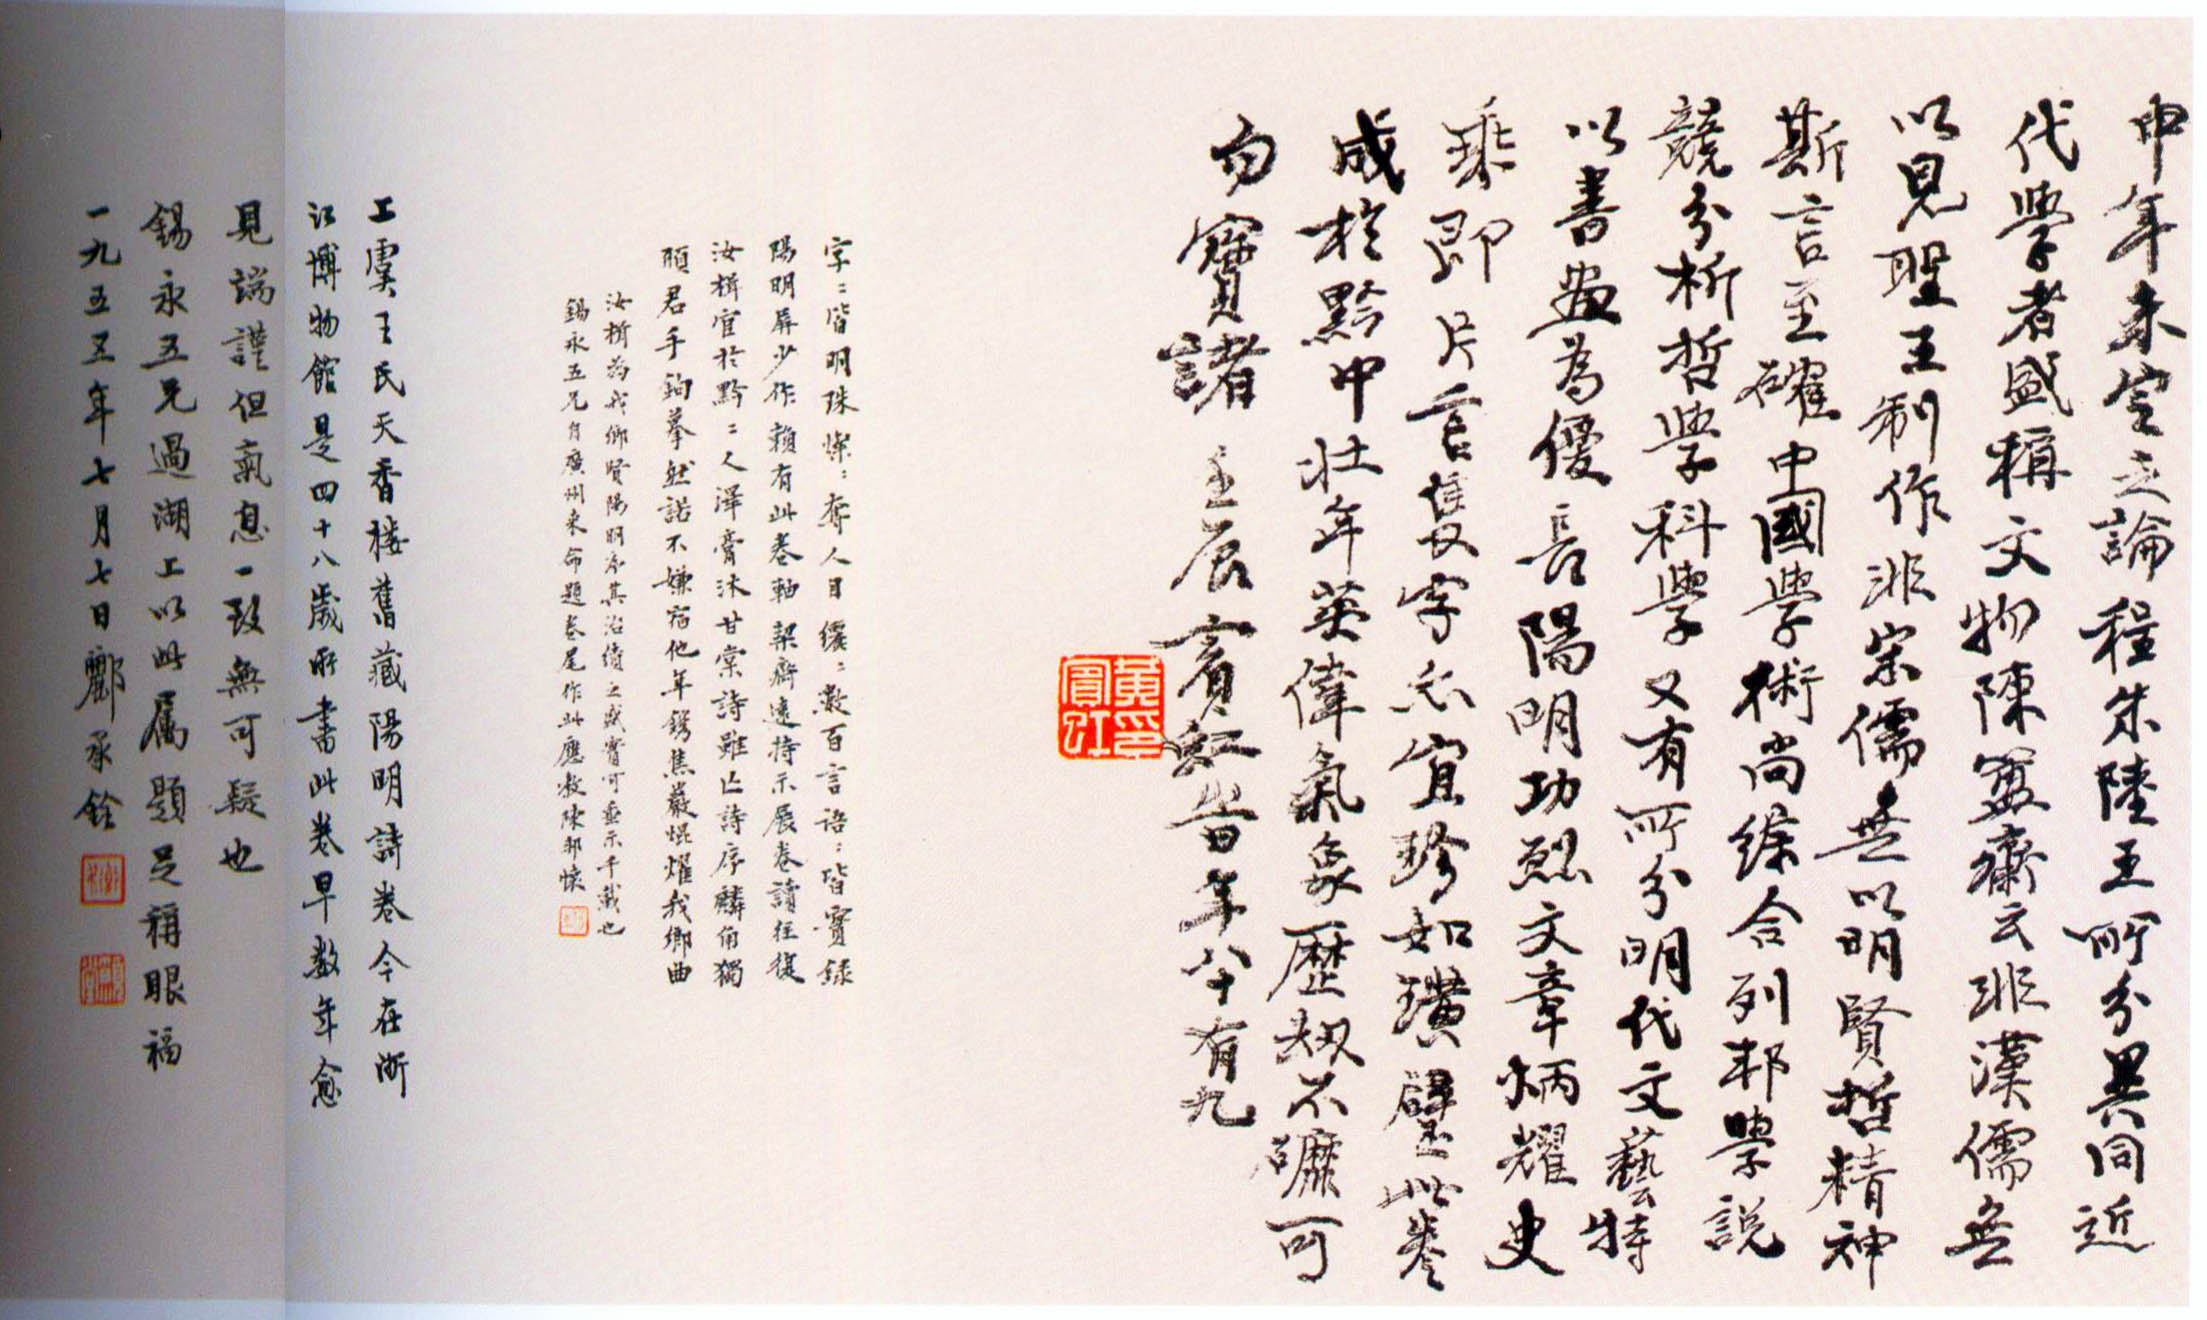 中年未定之論程朱陸王所分異同近
代學者盛稱文物陳蘭齋云非漢儒無
以見聖王制作非宋儒無以明賢哲精神
斯言至確中國學術尚綜合列邦學說
競分析哲學科學又有所分明代文藝特
以書畫為優長陽明功烈文章炳耀史
乘即片言隻字亦宜珍如璜璧此卷
成於黔中壯年英偉氣象歷劫不磨可
勿寶諸 壬辰賓虹時年八十有九
黃賓虹印
字〻皆明珠燦〻奪人目纚〻數百言語〻皆實錄
陽明孱少作賴有此卷軸契齋遠持示展卷讀往復
汝楫官於黔〻人澤膏沐甘棠詩雖亡詩序麟角獨
願君手鉤摹然諾不嫌宿他年鐫焦巖焜燿我鄉曲
汝楫為我鄉賢陽明序其治績之盛實可垂示千載也
錫永五兄自廣州來命題卷尾作此應教陳邦懷
上虞王氏天香樓舊藏陽明詩卷今在浙
江博物館是四十八歲所書此卷早數年愈
見端謹但氣息一致無可疑也
錫永五兄過湖上以此屬題足稱眼福
一九五五年七月七日酈承銓